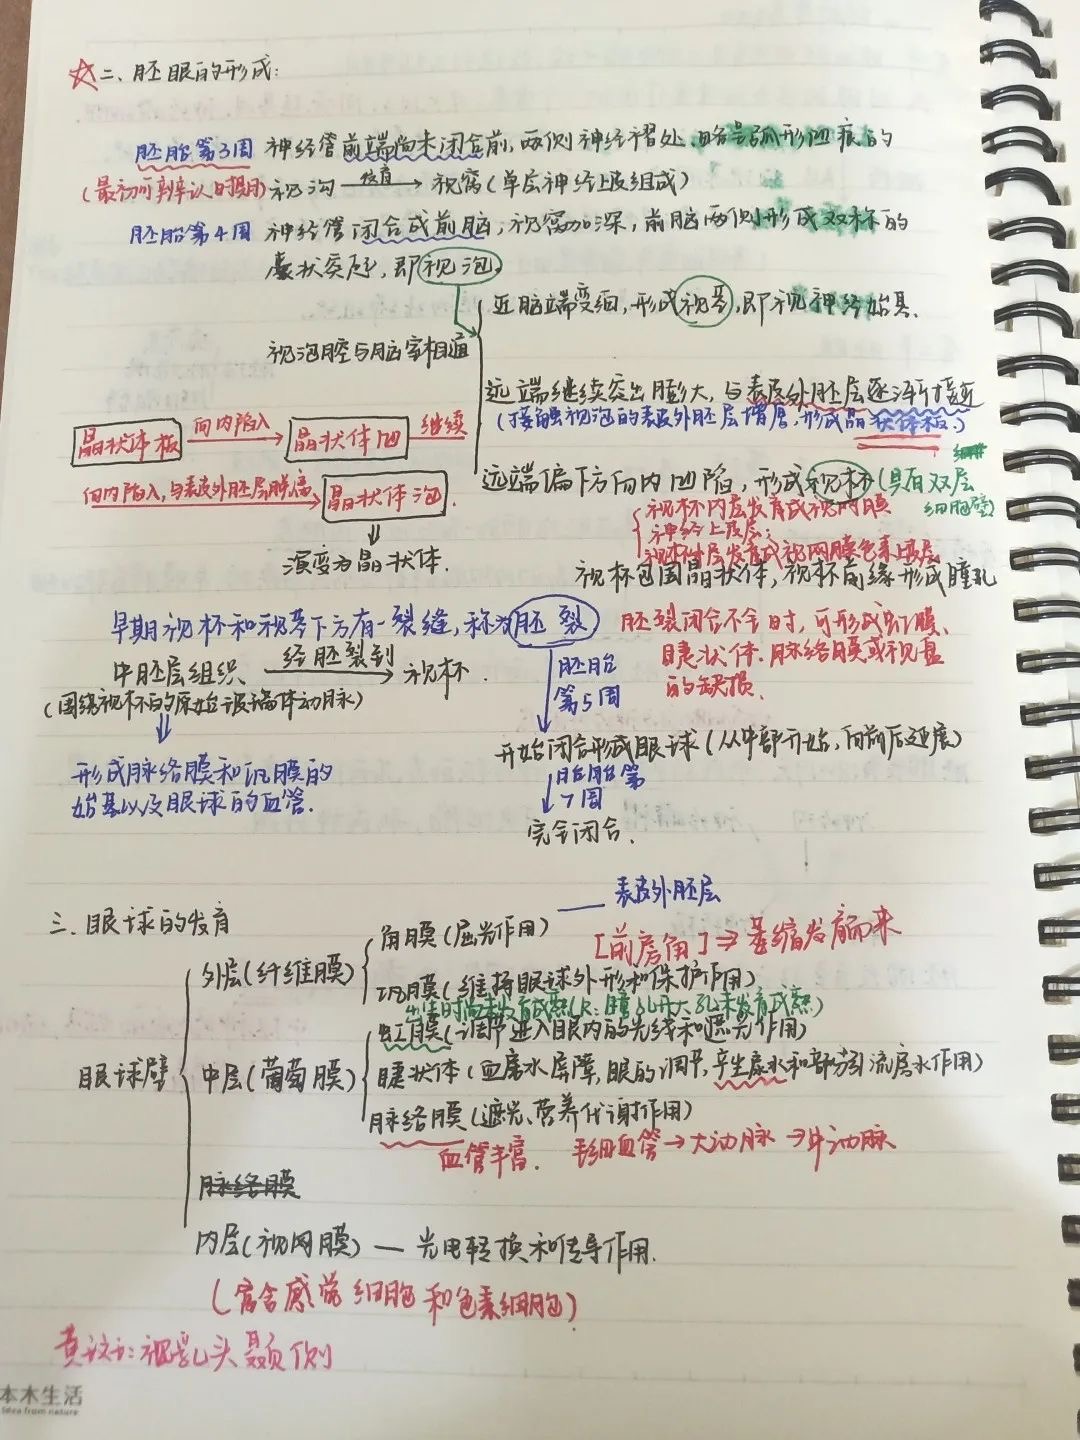 ☆二、胚眼的形成:
胚胎第3周 神经管前端尚未闭合前,两侧神经褶处,略呈弧形凹痕的
(最初可辨认时期) 视沟 发育→ 视窝(单层神经上皮组成)
胚胎第4周 神经管闭合成前脑,视窝加深,前脑两侧形成双称的
囊状突起,即视泡。
近脑端变细,形成视茎,即视神经始基.
视泡腔与脑室相通
远端继续突出膨大,与表皮外胚层逐渐接近
(接触视泡的表皮外胚层增厚,形成晶状体板.)
晶状体板 向内陷入 晶状体凹 继续
远端偏下方向内凹陷,形成视杯(具有双层细胞壁)
向内陷入,与表皮外胚层脱离→ 晶状体泡.
视杯内层发育成视网膜
神经上皮层;
视杯外层发育成视网膜色素上皮层
演变为晶状体.
视杯包围晶状体,视杯前缘形成瞳孔
早期视杯和视茎下方有一裂缝,称为胚裂
胚裂闭合不全时,可形成虹膜、
睫状体、脉络膜或视盘
的缺损.
中胚层组织 经胚裂到→ 视杯.
(围绕视杯的原始玻璃体动脉)
胚胎
第5周
开始闭合形成眼球(从中部开始,向前后延展)
形成脉络膜和巩膜的
始基以及眼球的血管.
胚胎第
7周
完全闭合.
三、眼球的发育
表皮外胚层
角膜(屈光作用)
[前房角]⇒萎缩发育而来
外层(纤维膜)
巩膜(维持眼球外形和保护作用)
虹膜(调节进入眼内的光线和遮光作用)
眼球壁 中层(葡萄膜) 睫状体(血房水屏障,眼的调节,产生房水和部分引流房水作用)
脉络膜(遮光、营养代谢作用)
血管丰富. 毛细血管→大动脉→中动脉
脉络膜
内层(视网膜)—光电转换和传导作用.
(富含感觉细胞和色素细胞)
视乳头颞侧
本木生活
Idea from nature